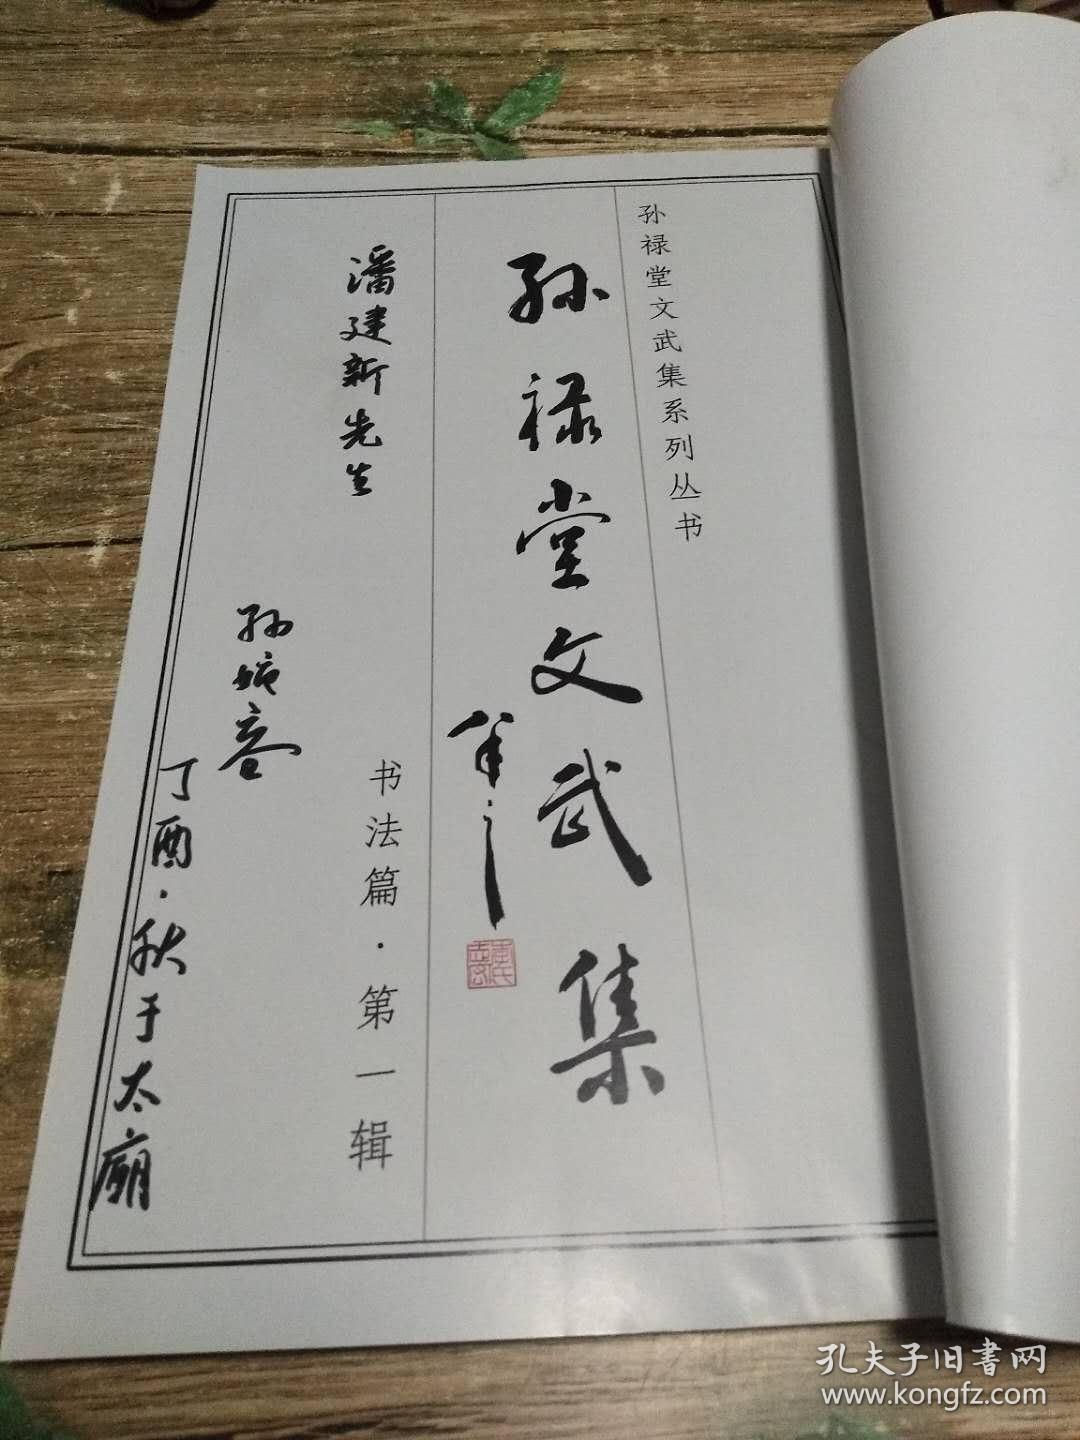 孙禄堂文武集系列丛书
孙禄堂文武集
书法篇·第一辑
潘建新先生
孙婉容
丁酉·秋于太庙
孔夫子旧書网
www.kongfz.com